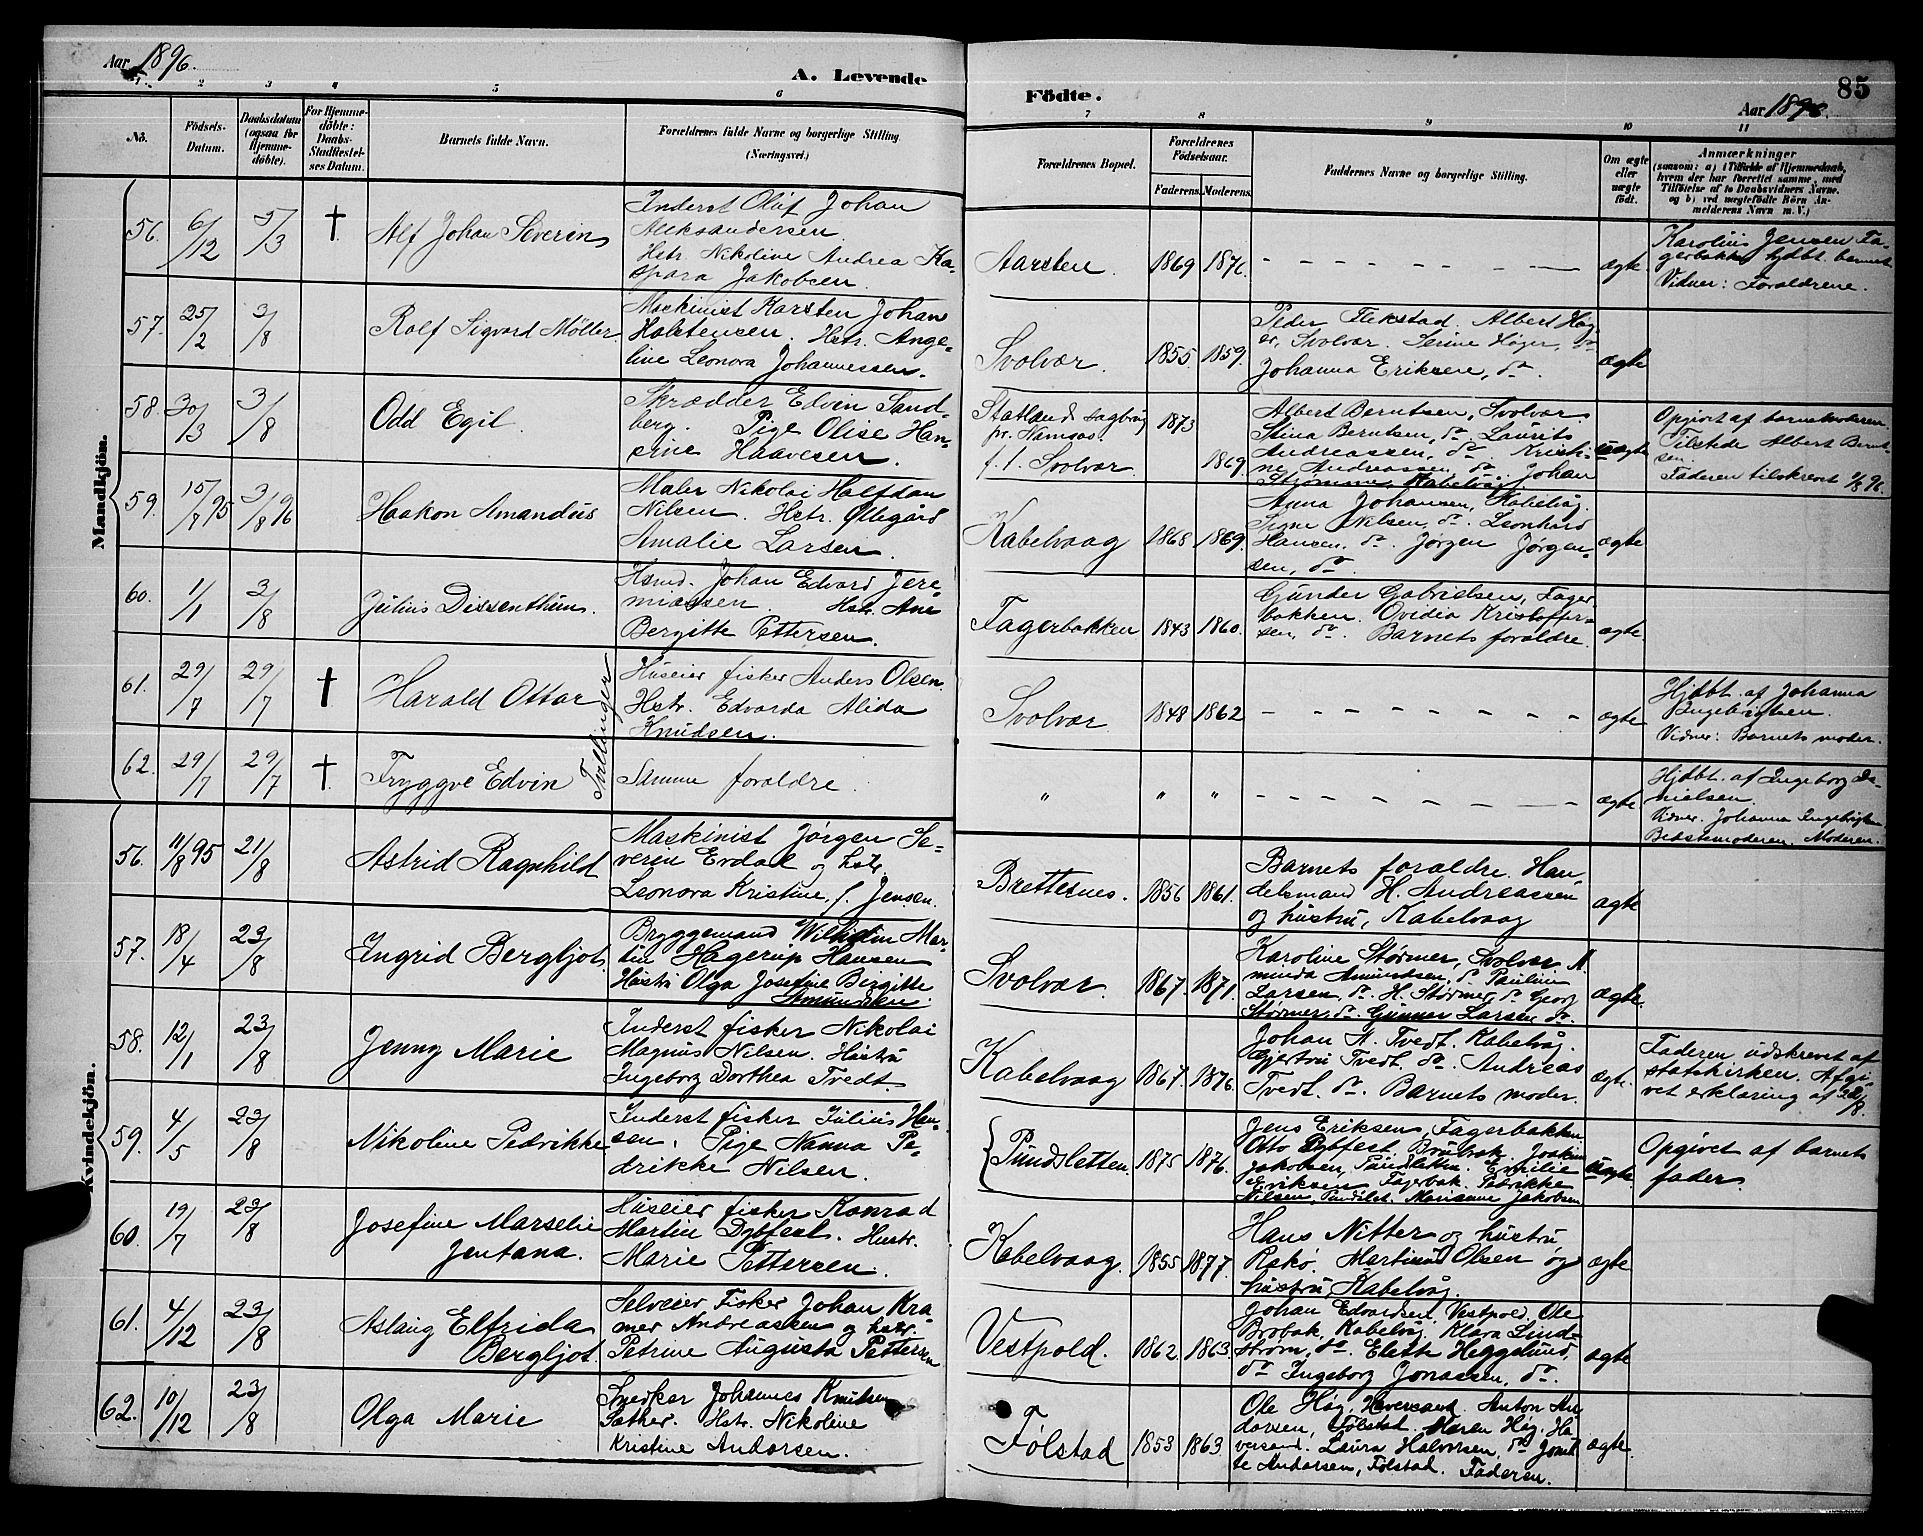 Aar 1896.
A. Levende
Födte.
85
Aar 1896.
1 2 3 4 5 6 7 8 9 10 11
No.
Födsels-
Datum.
Daabsdatum
(ogsaa for
Hjemme-
döbte).
For Hjemme-
döbte:
Daabs-
Stadfæstel-
ses Datum.
Barnets fulde Navn.
Forældrenes fulde Navne og borgerlige Stilling.
(Næringsvei.)
Forældrenes Bopæl.
Forældrenes
Födselsaar.
Faderens. Moderens.
Faddernes Navne og borgerlige Stilling.
Om ægte
eller
uægte
födt.
Anmærkninger
(saasom: a) i Tilfælde af Hjemmedaab,
hvem der har forrettet samme, med
Tilföielse af to Daabsvidners Navne.
og b) ved uægtefödte Börn An-
melderens Navn m. V.)
Mandkjön.
56. 6/12 5/3 † Alf Johan Severin
Inderst Olaf Johan
Aleksandersen.
Hstr. Nikoline Andrea Ka-
spara Jakobsen.
Aarsten. 1869 1876. ægte
Karolius Jensen Fa-
gerbakk hjdbt. barnet
Vidner: Forældrene.
57. 25/2 3/8 Rolf Sigvard Möller
Maskinist Karsten Johan
Holstensen. Hstr. Ange-
line Leonora Johannessen.
Svolvær. 1855 1859.
Peder Flekstad. Albert Høg-
er, Svolvær. Serine Höger, do
Johanna Eriksen, do.
ægte
58. 30/3 3/8 Odd Egil.
Skrædder Edvin Sand-
berg. Pige Olise Han-
sine Haavesen.
Statland sagbrug
pr. Namsos.
f. t. Svolvær.
1873 1869.
Albert Berntsen, Svolvær
Stina Berntsen, do. Laurits
Andreassen, do. Kristi-
ne Andreassen, do Johan
Strømme, Kabelvåg.
uægte
Opgivet af barnemoderen
Tilstede Albert Bernt-
sen.
Faderen tilskrevet 4/8 96.
59. 15/7 95 3/8 96 Haakon Amandus
Maler Nikolai Halfdan
Nilsen. Hstr. Ollegård
Amalie Larsen.
Kabelvaag 1868 1869.
Anna Johansen, Kabelvåg.
Signe Nilsen, do. Leonhard
Hansen, do. Jørgen Jørgen-
sen, do
ægte
60. 1/1 3/8 Julius Dissenthun.
Hsmd. Johan Edvard Jere-
miassen. Hstr. Ane
Bergitte Pettersen.
Fagerbakken 1843 1860.
Gunder Gabrielsen, Fager-
bakken. Ovidia Kristoffer-
sen, do. Barnets forældre.
ægte
61. 29/7 29/7 † Harald Ottar
Tvillinger
Huseier fisker Anders Olsen.
Hstr. Edvarda Alida
Knudsen.
Svolvær 1848 1862 ægte
Hjdbt. af Johanna
Ingebrigtsen.
Vidner: Barnets moder.
62. 29/7 29/7 † Tryggve Edvin
Samme forældre.
" " " ægte
Hjdbt. af Ingeborg Da-
nielsen.
Vidner. Johanna Ingebrigtsen
Bedstemoderen. Moderen.
Kvindekjön.
56. 11/8 95 21/8 Astrid Ragnhild
Maskinist Jørgen Se-
verin Erdal og hstr.
Leonora Kristine, f. Jensen.
Brettesnes. 1856 1861.
Barnets forældre. Han-
delsmand H. Andreassen
og hustru, Kabelvaag
ægte
57. 18/4 23/8 Ingrid Bergljot.
Bryggemand Wilhelm Mar-
tin Hagerup Hansen
Hustr. Olga Josefine Birgitte
Amundsen.
Svolvær. 1867. 1871.
Karoline Størmer, Svolvær A-
minda Amundsen, do Pauline
Larsen, do. H. Størmer, do Georg
Størmer, do. Gunner Larsen do.
ægte
58. 12/1 23/8 Jenny Marie
Inderst fisker Nikolai
Magnus Nilsen. Hustru
Ingeborg Dorthea Tvedt.
Kabelvaag 1867. 1876.
Johan A. Tvedt. Kabelvåg.
Gjertru Tvedt. do. Andreas
Tvedt. do. Barnets moder.
ægte.
Faderen udskrevet af
statskirken. Afgi-
vet erklæring af 22/8.
59. 4/5 23/8 Nikoline Pedrikke
Inderst fisker Julius Han-
sen. Pige Nanna Pe-
drikke Nilsen.
Pundsletten. 1875 1876.
Jens Eriksen, Fagerbakken
Otto Dybfest, Brubak. Joakim
Jakobsen, Pundsletten. Emilie
Eriksen Fagerbak. Pedrikke
Nilsen, Pundslet. Marianne Jakobsen
uægte.
Opgivet af barnets
fader.
60. 19/7 23/8 Josefine Marselie
Jentana.
Huseier fisker Konrad
Martin Dybfest. Hustr.
Marie Pettersen.
Kabelvaag. 1855 1877.
Hans Nitter og hustru
Rækø. Martinus Olsen og
hustru, Kabelvåg.
ægte
61. 4/12 23/8 Aslaug Elfrida
Bergljot.
Selveier Fisker Johan Kra-
mer Andreassen og hstr.
Petrine Augusta Pettersen
Vestpold. 1862. 1863.
Johan Edvardsen, Vestpold, Ole
Brobak, Kabelvåg. Klara Lind-
strøm, do. Elette Heggelund,
do Ingeborg Jonassen, do.
ægte
62. 10/12 23/8 Olga Marie
Snedker Johannes Knutsen
Sæther. Hstr. Nikoline
Kristine Andorsen.
Følstad 1853 1863
Ole Høg, Heversand. Anton An-
dorsen, Følstad. Maren Høg, He-
versand. Laura Halvorsen, do
Andorsen, Følstad. Faderen.
ægte.